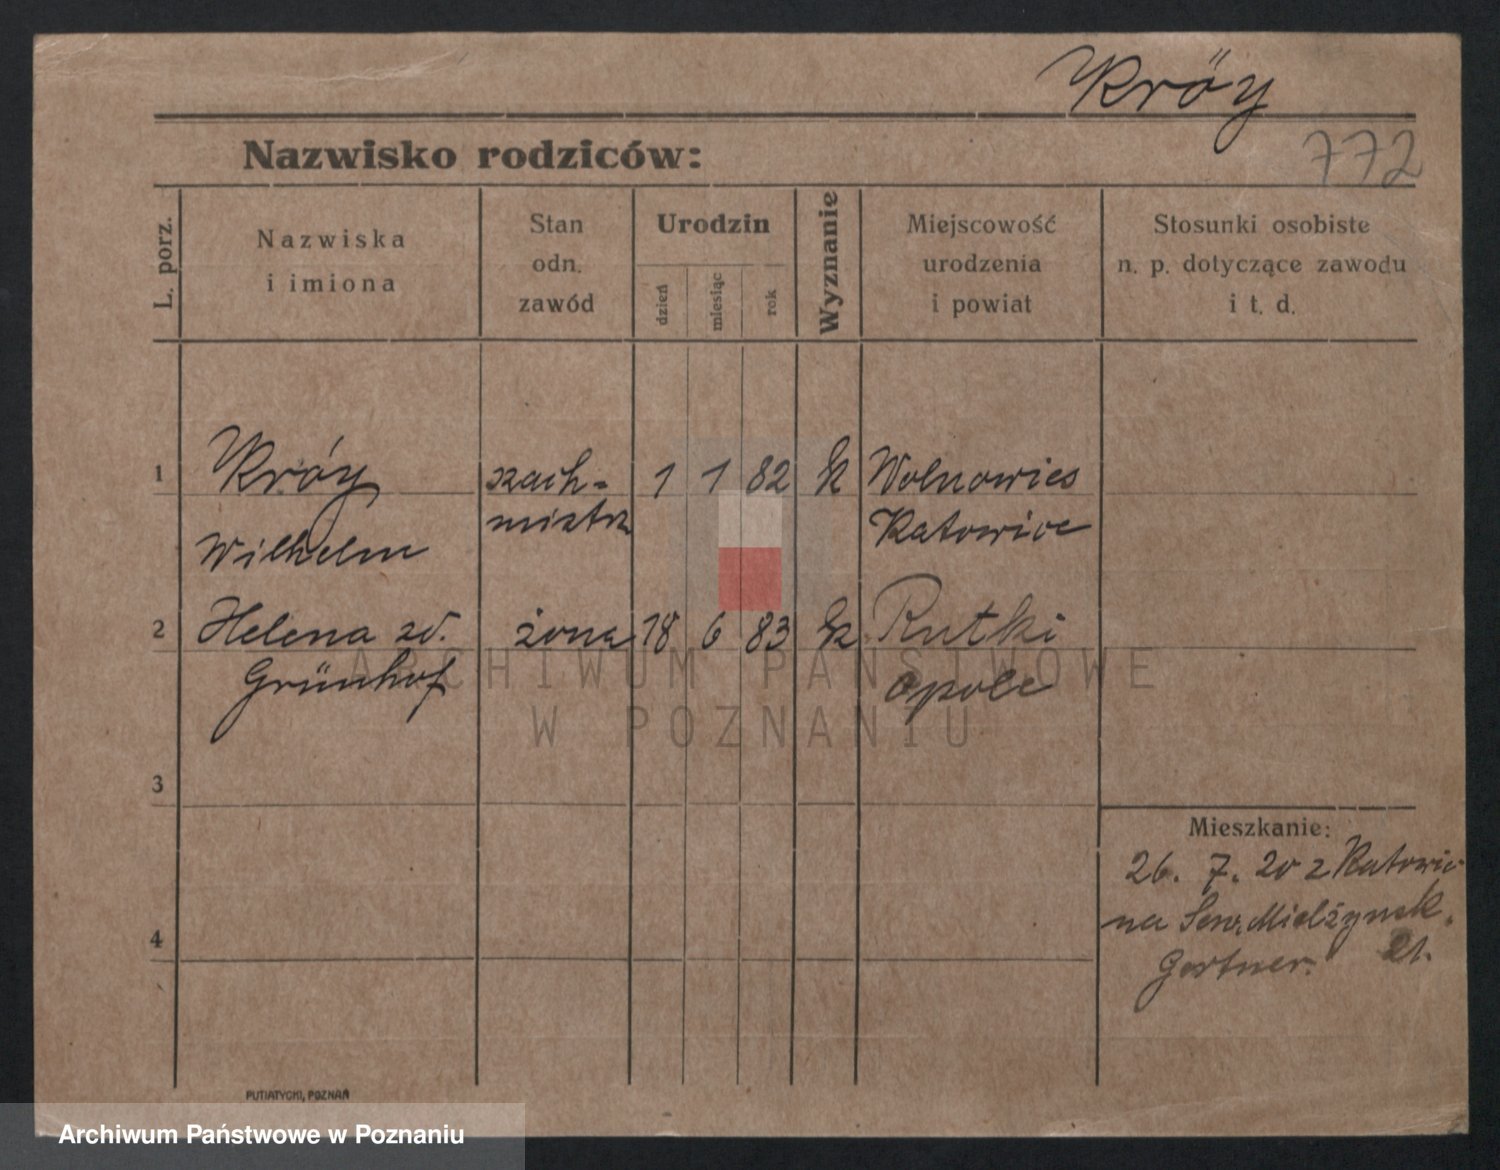 Kröy
772
Nazwisko rodziców:
L. porz.
Nazwiska
i imiona
Stan
odn.
zawód
Urodzin
dzień
miesiąc
rok
Wyznanie
Miejscowość
urodzenia
i powiat
Stosunki osobiste
n. p. dotyczące zawodu
i t. d.
1 Króy 1 1 82 k
Wilhelm
Katowice
2 Helena zd. żona 18 6 83 k Rutki
Grünhof Opole
3
4
Mieszkanie:
26. 7. 20 z Katowic
na Sew. Mielżyńsk.
Gertner. 21.
PUTIATYCKI, POZNAŃ
ARCHIWUM PAŃSTWOWE
W POZNANIU
Archiwum Państwowe w Poznaniu